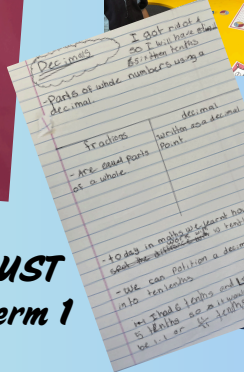 Decimals
I got rid of 4
so I will have
6 is then tenths
-Parts of whole numbers using a
decimal.
fractions
decimal
- Are equal parts
of a whole
written as a decimal
Point
-today in maths we learnt how
- We can partition a decim
into tenths
I had 6 tenths and
5 tenths so it
be 1.1 or tenths
UST
erm 1